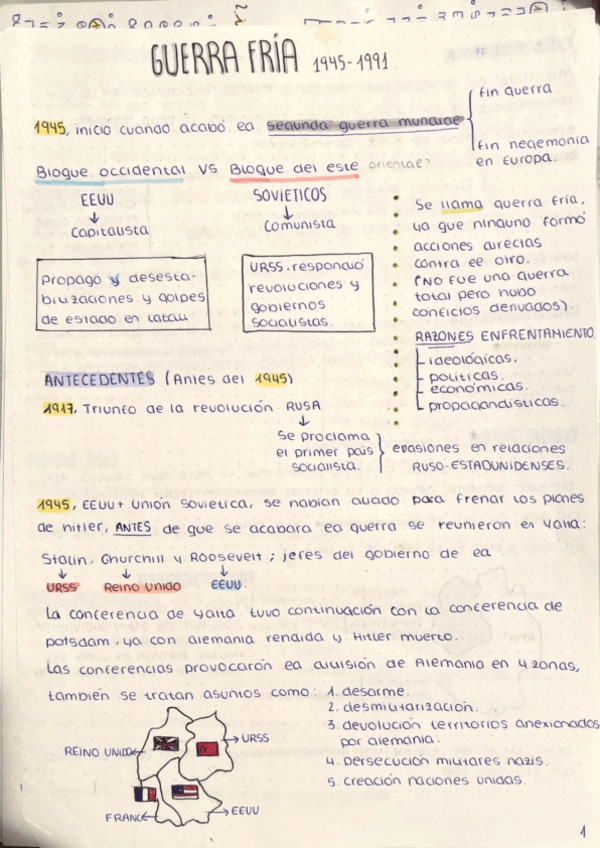 GUERRA FRÍA 1945-1991
1945, inicio cuando acabó la segunda guerra mundial
fin guerra.
fin hegemonía
en Europa.
Bloque occidental VS Bloque del este oriental?
EEUU
↓
Capitalista
SOVIETICOS
↓
Comunista
Propagó y desesta-
bilizaciones y golpes
de estado en Latau
URSS. respondió
revoluciones y
gobiernos
socialistas.
Se llama guerra fría,
ya que ninguno formó
acciones directas
contra el otro.
(NO FUE una guerra
total pero hubo
conflictos derivados).
RAZONES ENFRENTAMIENTO
ideológicas.
políticas.
económicas.
propagandísticas.
ANTECEDENTES (Antes del 1945)
1917. Triunfo de la revolución RUSA
↓
Se proclama
el primer país
socialista.
evasiones en relaciones
RUSO-ESTADUNIDENSES.
1945, EEUU + Unión Sovietica, se habían aliado para frenar los planes
de hitler, ANTES de que se acabara la guerra se reunieron en Yalta:
Stalin, Churchill y Roosevelt ; jefes del gobierno de la
↓ ↓ ↓
URSS Reino Unido EEUU.
La conferencia de Yalta tuvo continuación con la conferencia de
Potsdam. ya con alemania rendida y Hitler muerto.
Las conferencias provocarón la división de Alemania en 4 zonas,
también se tratan asuntos como: 1. desarme.
2. desmilitarización.
3. devolución territorios anexionados
por alemania.
4. persecución militares nazis.
5. creación naciones unidas.
REINO UNIDO
URSS
FRANC
EEUU
1